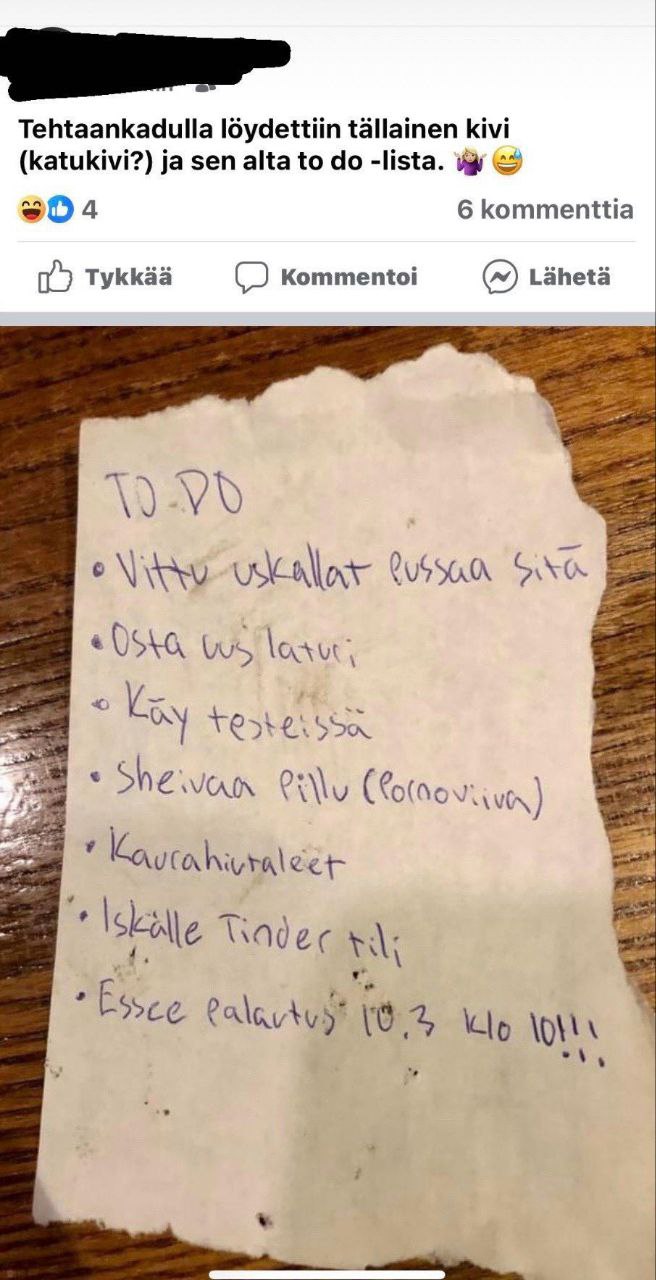 Tehtaankadulla löydettiin tällainen kivi
(katukivi?) ja sen alta to do -lista. 🤷🏼‍♀️ 😅
4
6 kommenttia
Tykkää
Kommentoi
Lähetä
TO DO
• Vittu uskallat pussaa sitä
• Osta uus laturi
• Käy testeissä
• Sheivaa pillu (Pornoviiva)
• Kaurahiutaleet
• Iskälle Tinder tili
• Essee palautus 10.3 klo 10!!!